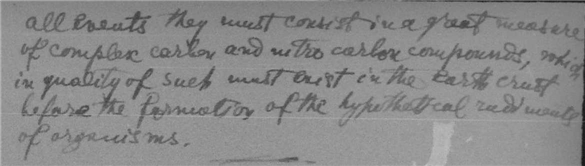 all events they must consist in a great measure
of complex carbon and nitro carbon compounds, which
in quality of such must exist in the Earth crust
before the formation of the hypothetical rudiments
of organisms.